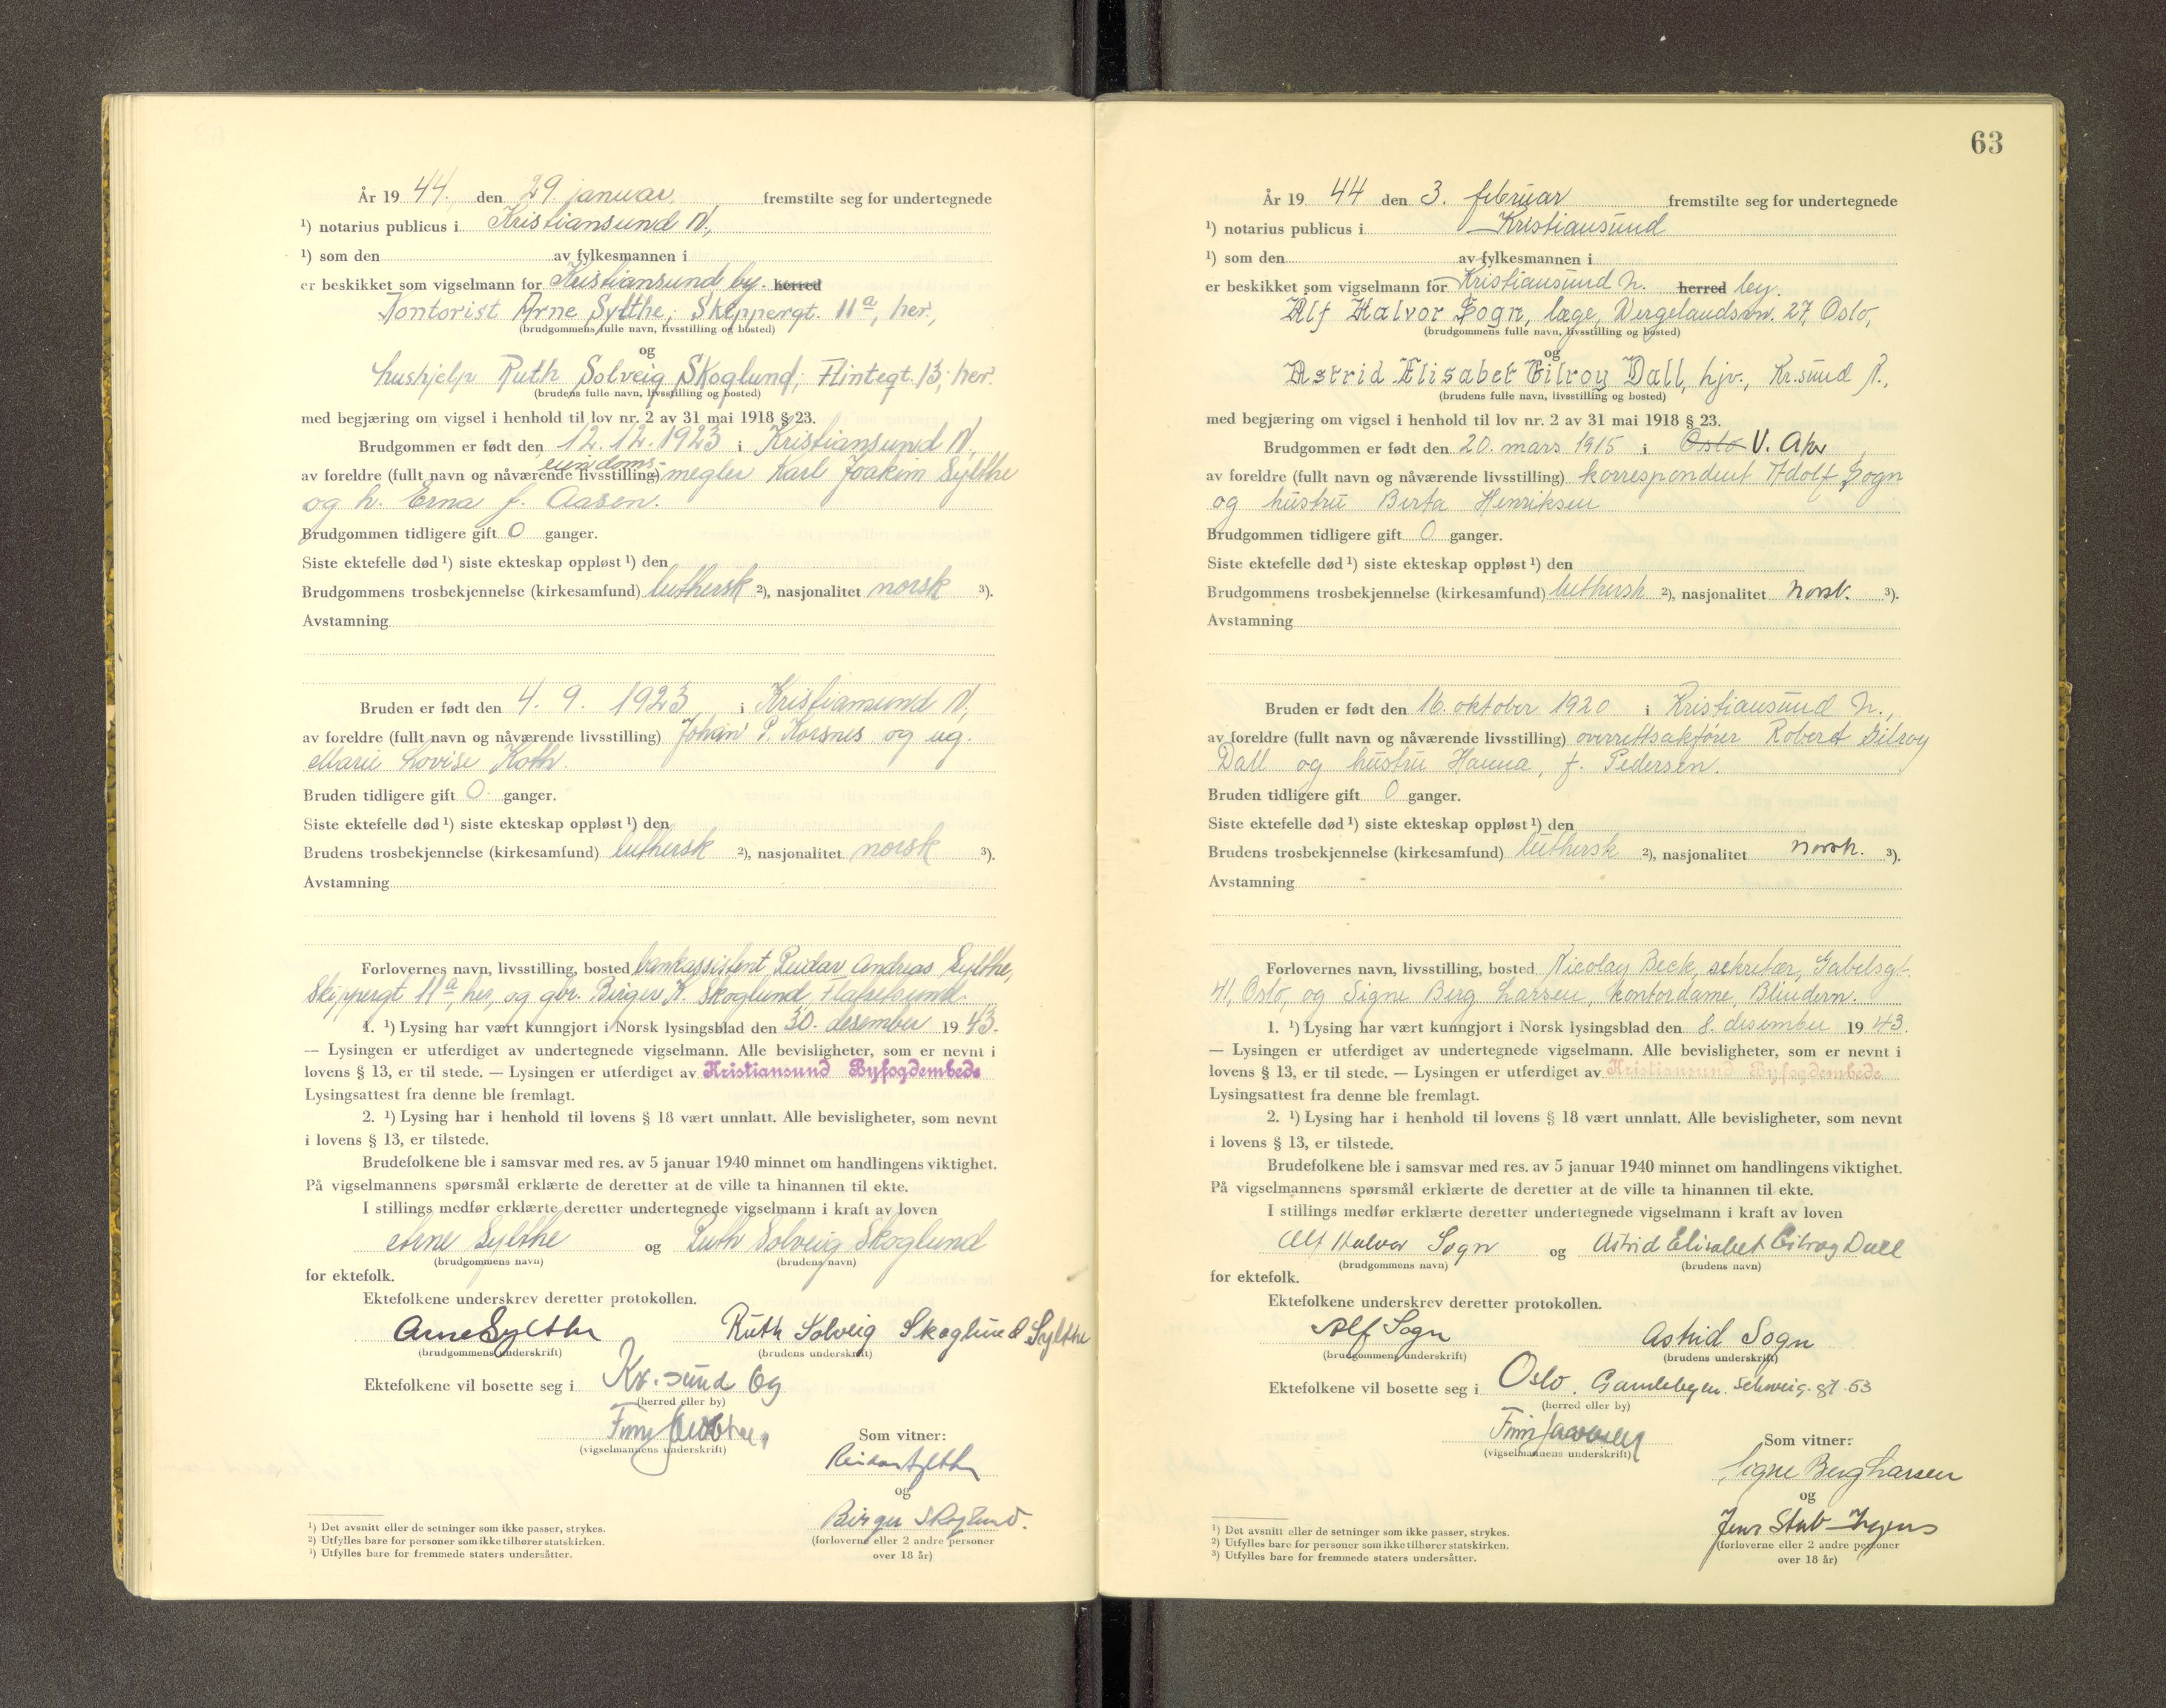 År 19 44. den 29. januar. fremstilte seg for undertegnede
¹) notarius publicus i Kristiansund N.,
¹) som den av fylkesmannen i
er beskikket som vigselmann for Kristiansund by. herred
Kontorist Arne Sylthe, Skippergt. 11ª, her.,
(brudgommens fulle navn, livsstilling og bosted)
og
hushjelp Ruth Solveig Skoglund, Flintegt. 13, her.
(brudens fulle navn, livsstilling og bosted)
med begjæring om vigsel i henhold til lov nr. 2 av 31 mai 1918 § 23.
Brudgommen er født den 12. 12. 1923 i Kristiansund N.
av foreldre (fullt navn og nåværende livsstilling) eiendoms-megler Karl Joakim Sylthe
og h. Erna f. Aasen.
Brudgommen tidligere gift 0 ganger.
Siste ektefelle død ¹) siste ekteskap oppløst ¹) den
Brudgommens trosbekjennelse (kirkesamfund) luthersk ²), nasjonalitet norsk ³).
Avstamning
Bruden er født den 4. 9. 1923 i Kristiansund N.,
av foreldre (fullt navn og nåværende livsstilling) Johan P. Korsnes og ug.
Marie Lovise Hoth.
Bruden tidligere gift 0 ganger.
Siste ektefelle død ¹) siste ekteskap oppløst ¹) den
Brudens trosbekjennelse (kirkesamfund) luthersk ²), nasjonalitet norsk ³).
Avstamning
Forlovernes navn, livsstilling, bosted bankassistent Reidar Andreas Sylthe,
Skippergt 11ª, her, og gbr. Birger K. Skoglund,
1. ¹) Lysing har vært kunngjort i Norsk lysingsblad den 30. desember 19 43.
— Lysingen er utferdiget av undertegnede vigselmann. Alle bevisligheter, som er nevnt i
lovens § 13, er til stede. — Lysingen er utferdiget av Kristiansund Byfogdembede
Lysingsattest fra denne ble fremlagt.
2. ¹) Lysing har i henhold til lovens § 18 vært unnlatt. Alle bevisligheter, som nevnt
i lovens § 13, er tilstede.
Brudefolkene ble i samsvar med res. av 5 januar 1940 minnet om handlingens viktighet.
På vigselmannens spørsmål erklærte de deretter at de ville ta hinannen til ekte.
I stillings medfør erklærte deretter undertegnede vigselmann i kraft av loven
Arne Sylthe og Ruth Solveig Skoglund
(brudgommens navn) (brudens navn)
for ektefolk.
Ektefolkene underskrev deretter protokollen.
Arne Sylthe Ruth Solveig Skoglund Sylthe
(brudgommens underskrift) (brudens underskrift)
Ektefolkene vil bosette seg i Kr.sund by
(herred eller by)
Finn
(vigselmannens underskrift)
Som vitner:
Reidar Sylthe
og
Birger Skoglund.
(forloverne eller 2 andre personer
over 18 år)
¹) Det avsnitt eller de setninger som ikke passer, strykes.
²) Utfylles bare for personer som ikke tilhører statskirken.
³) Utfylles bare for fremmede staters undersåtter.
63
År 19 44 den 3. februar fremstilte seg for undertegnede
¹) notarius publicus i Kristiansund
¹) som den av fylkesmannen i
er beskikket som vigselmann for Kristiansund N. herred by.
Alf Halvor Sogn, læge, Wergelandsvn. 27, Oslo,
(brudgommens fulle navn, livsstilling og bosted)
og
Astrid Elisabet Gilroy Dall, hjv., Kr.sund N.,
(brudens fulle navn, livsstilling og bosted)
med begjæring om vigsel i henhold til lov nr. 2 av 31 mai 1918 § 23.
Brudgommen er født den 20. mars 1915 i Oslo V. Aker
av foreldre (fullt navn og nåværende livsstilling) korrespondent Adolf Sogn
og hustru Berta Henriksen
Brudgommen tidligere gift 0 ganger.
Siste ektefelle død ¹) siste ekteskap oppløst ¹) den
Brudgommens trosbekjennelse (kirkesamfund) luthersk ²), nasjonalitet norsk. ³).
Avstamning
Bruden er født den 16. oktober 1920 i Kristiansund N.,
av foreldre (fullt navn og nåværende livsstilling) overrettsakfører Robert Gilroy
Dall og hustru Hanna, f. Pedersen.
Bruden tidligere gift 0 ganger.
Siste ektefelle død ¹) siste ekteskap oppløst ¹) den
Brudens trosbekjennelse (kirkesamfund) luthersk ²), nasjonalitet norsk. ³).
Avstamning
Forlovernes navn, livsstilling, bosted Nicolay Beck, sekretær, Gabelsgt.
41, Oslo, og Signe Berg Larsen, kontordame, Blindern.
1. ¹) Lysing har vært kunngjort i Norsk lysingsblad den 8. desember 19 43.
— Lysingen er utferdiget av undertegnede vigselmann. Alle bevisligheter, som er nevnt i
lovens § 13, er til stede. — Lysingen er utferdiget av Kristiansund Byfogdembede
Lysingsattest fra denne ble fremlagt.
2. ¹) Lysing har i henhold til lovens § 18 vært unnlatt. Alle bevisligheter, som nevnt
i lovens § 13, er tilstede.
Brudefolkene ble i samsvar med res. av 5 januar 1940 minnet om handlingens viktighet.
På vigselmannens spørsmål erklærte de deretter at de ville ta hinannen til ekte.
I stillings medfør erklærte deretter undertegnede vigselmann i kraft av loven
Alf Halvor Sogn og Astrid Elisabet Gilroy Dall
(brudgommens navn) (brudens navn)
for ektefolk.
Ektefolkene underskrev deretter protokollen.
Alf Sogn Astrid Sogn
(brudgommens underskrift) (brudens underskrift)
Ektefolkene vil bosette seg i Oslo. Gamlebyen. Schweig. gt. 53
(herred eller by)
Finn
(vigselmannens underskrift)
Som vitner:
Signe Berg Larsen
og
Jens Stub
(forloverne eller 2 andre personer
over 18 år)
¹) Det avsnitt eller de setninger som ikke passer, strykes.
²) Utfylles bare for personer som ikke tilhører statskirken.
³) Utfylles bare for fremmede staters undersåtter.